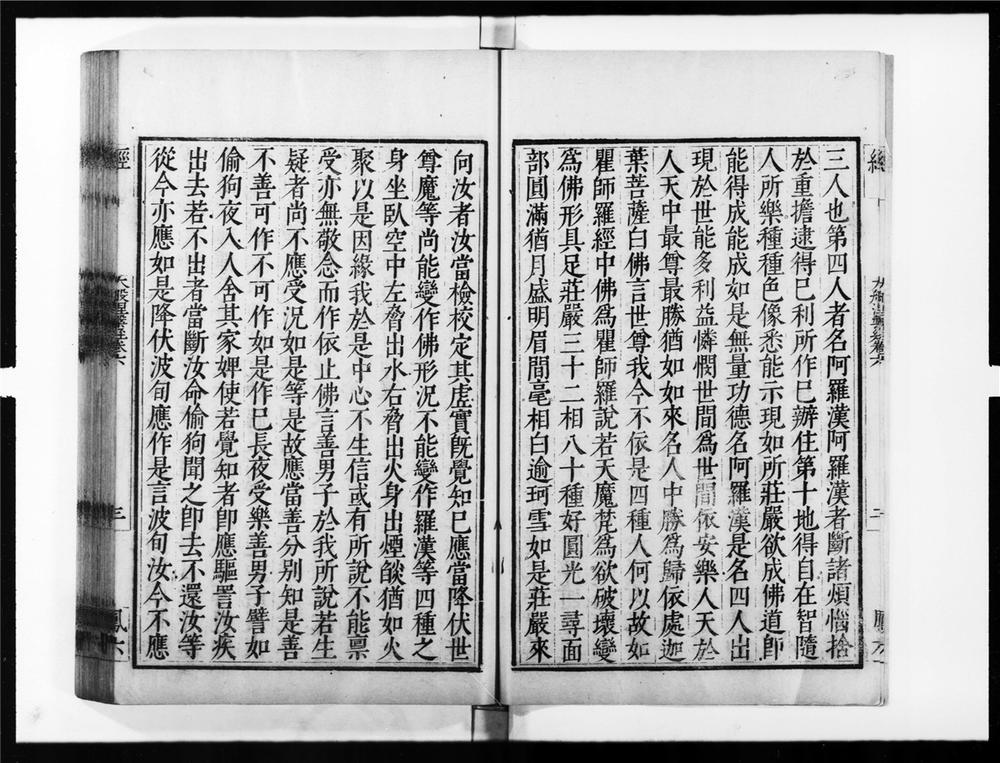 三人也第四人者名阿羅漢阿羅漢者斷諸煩惱捨
於重擔逮得已利所作已辦住第十地得自在智隨
人所樂種種色像悉能示現如所莊嚴欲成佛道卽
能得成能成如是無量功德名阿羅漢是名四人出
現於世能多利益憐憫世間爲世間依安樂人天於
人天中最尊最勝猶如如來名人中勝爲歸依處迦
葉菩薩白佛言世尊我今不依是四種人何以故如
瞿師羅經中佛爲瞿師羅說若天魔梵爲欲破壞變
爲佛形具足莊嚴三十二相八十種好圓光一尋面
部圓滿猶月盛明眉間毫相白逾珂雪如是莊嚴來
向汝者汝當檢校定其虛實旣覺知已應當降伏世
尊魔等尚能變作佛形況不能變作羅漢等四種之
身坐臥空中左脅出水右脅出火身出煙燄猶如火
聚以是因緣我於是中心不生信或有所說不能禀
受亦無敬念而作依止佛言善男子於我所說若生
疑者尚不應受況如是等是故應當善分别知是善
不善可作不可作如是作已長夜受樂善男子譬如
偷狗夜入人舍其家婢使若覺知者卽應驅罵汝疾
出去若不出者當斷汝命偷狗聞之卽去不還汝等
從今亦應如是降伏波旬應作是言波旬汝今不應
經
三